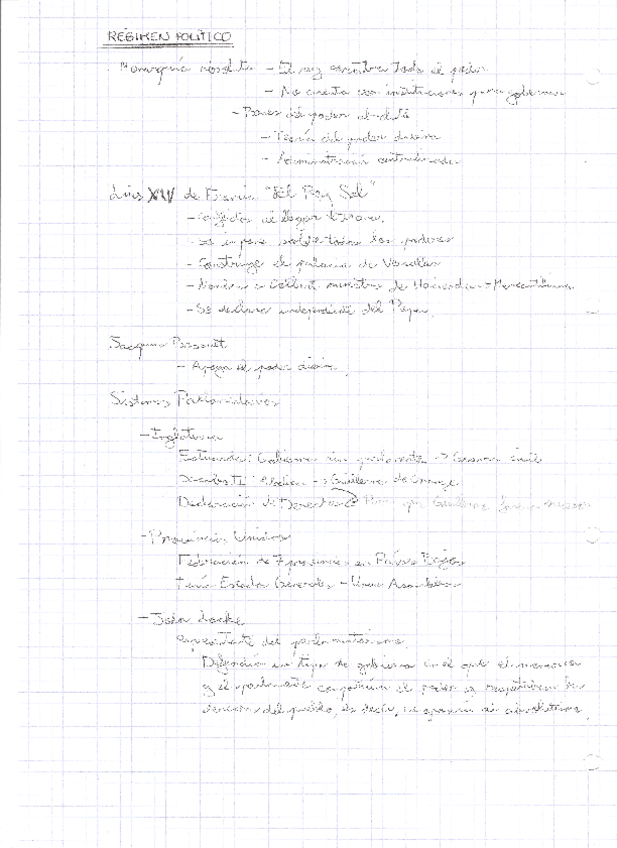 RÉGIMEN POLÍTICO
Monarquía absoluta - El rey concentra todo el poder
- No cuenta con instituciones para gobernar
- Bases del poder absoluto
- Teoría del poder divino
- Administración centralizada
Luis XIV de Francia "El Rey Sol"
- al llegar al trono
- Se impone sobre todos los poderes
- Construye el palacio de Versalles
- Nombra a Colbert ministro de Hacienda - Mercantilismo
- Se declara independiente del Papa
Jacques Bossuet
- Apoya el poder divino
Sistemas Parlamentarios
- Inglaterra
Estuardo: Gobiernan sin parlamento -> Guerra civil
Jacobo II: -> Guillermo de Orange
Declaración de Derechos para que Guillermo
- Provincias Unidas
Federación de 7 provincias en Países Bajos
Tenía Estados Generales - Una Asamblea
- John Locke
representante del parlamentarismo
Defendía un tipo de gobierno en el que el monarca
y el parlamento compartían el poder y respetaban los
derechos del pueblo, es decir, se oponía al absolutismo